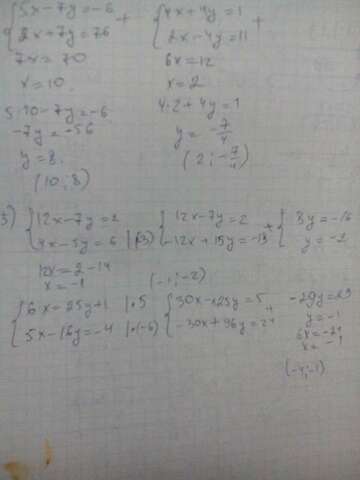 {5x-7y=-6 +
{2x+7y=76
7x=70
x=10
5·10-7y=-6
-7y=-56
y=8
(10;8)
{4x+4y=1 +
{2x-4y=11
6x=12
x=2
4·2+4y=1
y=-7/4
(2;-7/4)
3) {12x-7y=2
{4x-5y=6 |·(-3)
{12x-7y=2 +
{-12x+15y=-18
{8y=-16
y=-2
12x=2-14
x=-1
(-1;-2)
{6x=25y+1 |·5
{5x-16y=-4 |·(-6)
{30x-125y=5 +
{-30x+96y=24
-29y=29
y=-1
6x=-24
(-4;-1)